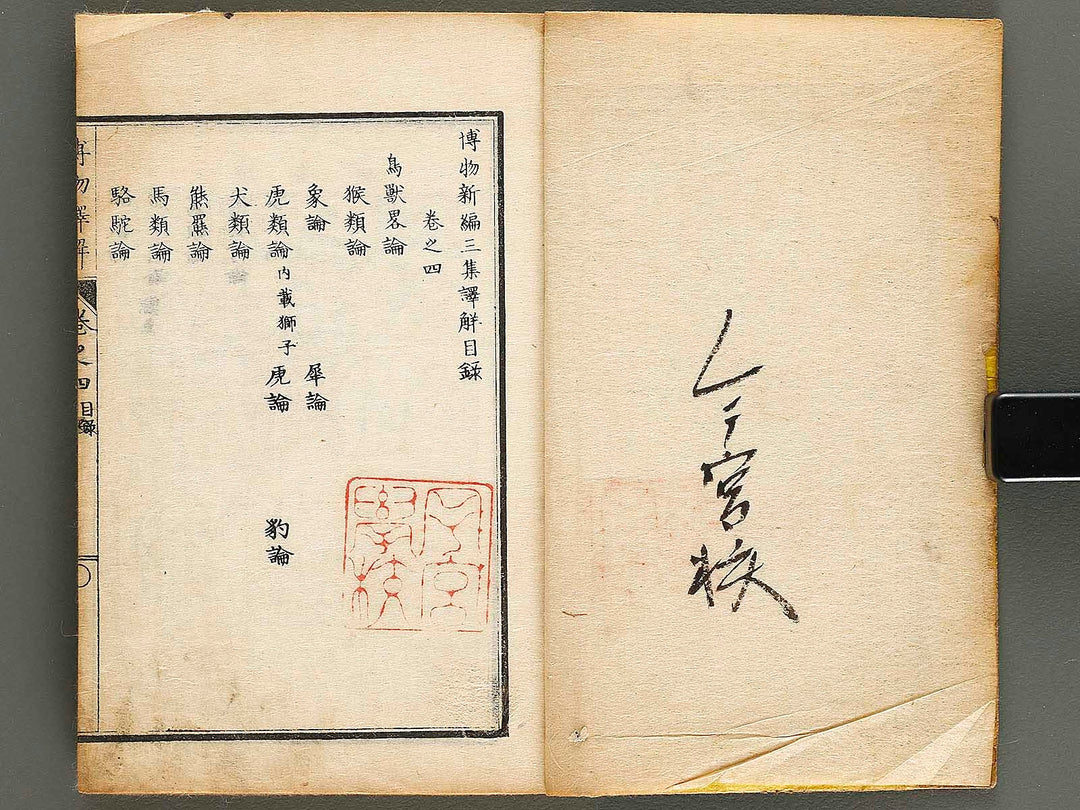 今宮校
博物新編三集譯觧目錄
卷之四
鳥獸畧論
猴類論
象論 犀論
虎類論 内載獅子 虎論 豹論
犬類論
熊羆論
馬類論
駱駝論
卷之四 目錄